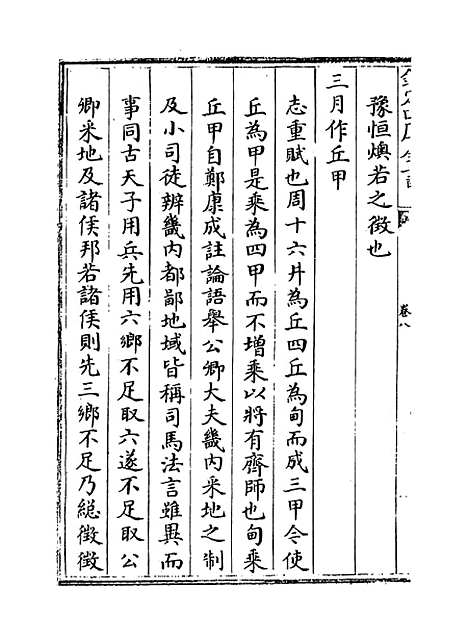 欽定四庫全書
卷八
豫恒燠若之徵也
三月作丘甲
志重賦也周十六井為丘四丘為甸而成三甲令使
丘為甲是乘為四甲而不增乘以將有齊師也甸乘
丘甲自鄭康成註論語舉公卿大夫畿内采地之制
及小司徒辨畿内都鄙地域皆稱司馬法言雖異而
事同古天子用兵先用六鄉不足取六遂不足取公
卿采地及諸侯邦若諸侯則先三鄉不足乃總徵徵